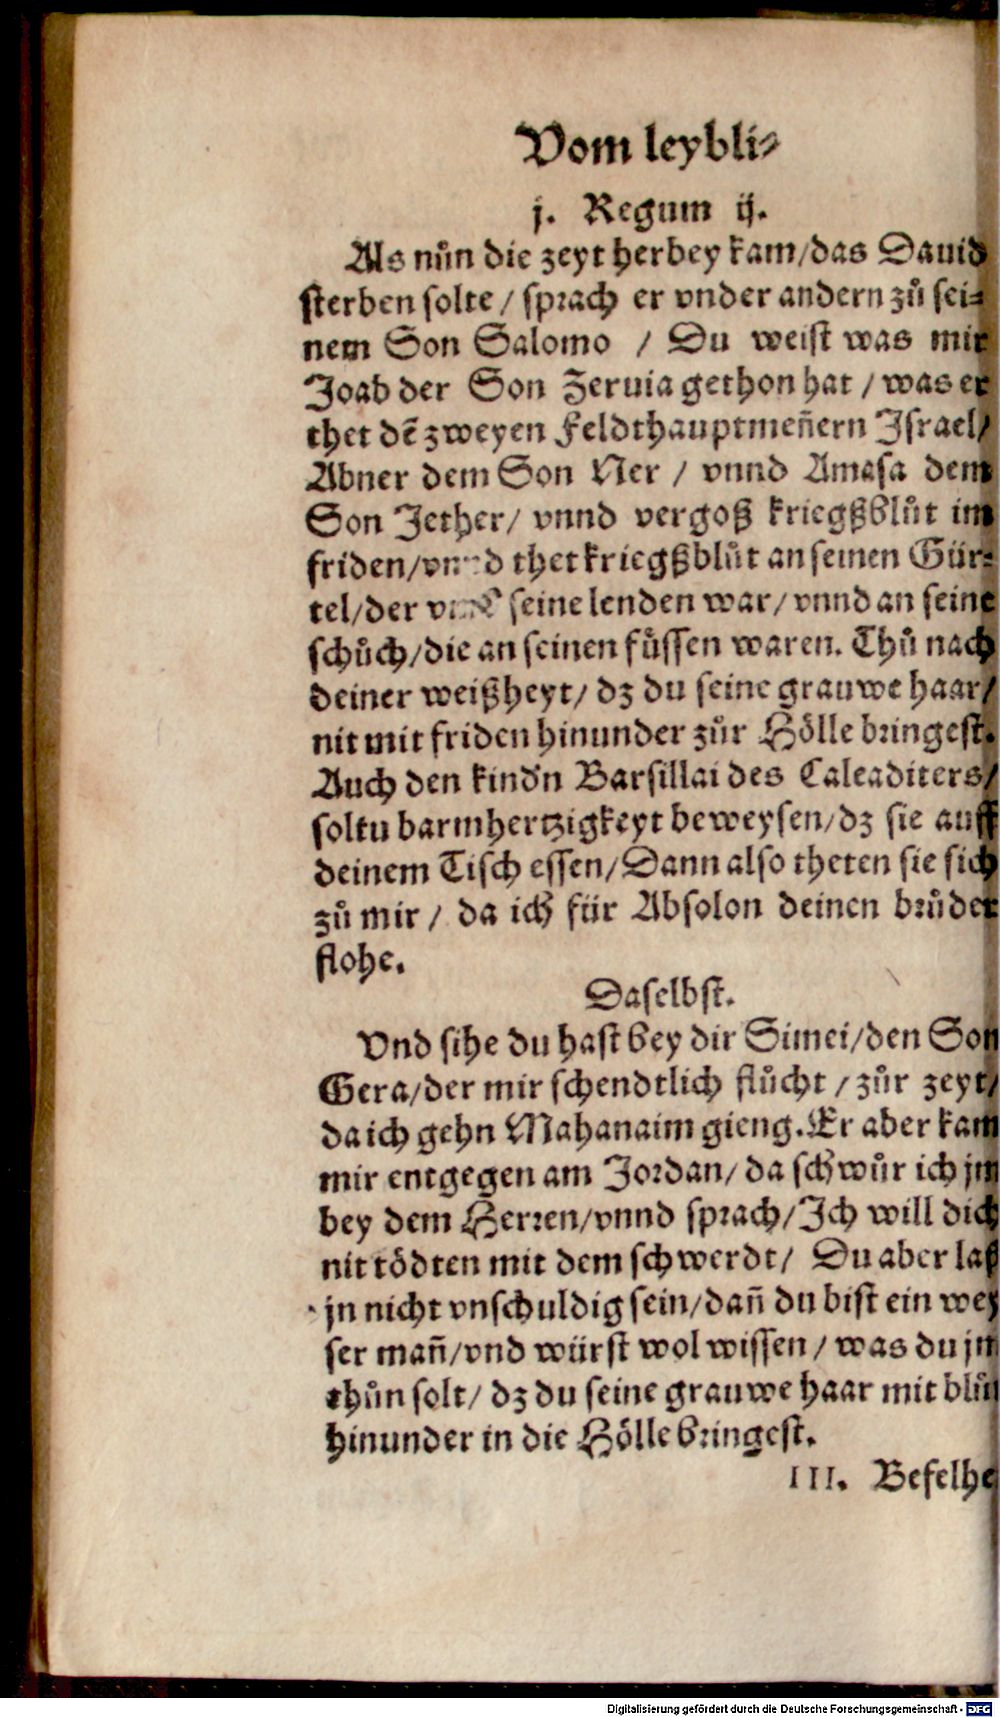 Vom leybli⸗
j. Regum ij.
Als nůn die zeyt herbey kam/das Dauid
sterben solte / sprach er vnder andern zů sei⸗
nem Son Salomo / Du weist was mir
Joab der Son Zeruia gethon hat / was er
thet dẽ zweyen Feldthauptmeñern Israel/
Abner dem Son Ner / vnnd Amasa dem
Son Jether/ vnnd vergoß kriegßblůt im
friden/vnnd thet kriegßblůt an seinen Gür⸗
tel/der seine lenden war/ vnnd an seine
schůch/die an seinen fůssen waren. Thů nach
deiner weißheyt/ dz du seine grauwe haar/
nit mit friden hinunder zůr Hölle bringest.
Auch den kindn Barsillai des Caleaditers/
soltu barmhertzigkeyt beweysen/dz sie auff
deinem Tisch essen/Dann also theten sie sich
zů mir / da ich für Absolon deinen brůder
flohe.
Daselbst.
Vnd sihe du hast bey dir Simei/den Son
Gera/der mir schendtlich flůcht / zůr zeyt/
da ich gehn Mahanaim gieng. Er aber kam
mir entgegen am Jordan/ da schwůr ich jm
bey dem Herren/vnnd sprach/Ich will dich
nit tödten mit dem schwerdt/ Du aber laß
jn nicht vnschuldig sein/dañ du bist ein wey
ser mañ/vnd würst wol wissen / was du jm
thůn solt/ dz du seine grauwe haar mit blůt
hinunder in die Hölle bringest.
III. Befelhe
Digitalisierung gefördert durch die Deutsche Forschungsgemeinschaft - DFG